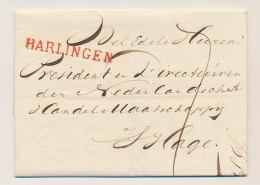 HARLINGEN
Wel Edele Heeren
President en Directeuren
der Nederlandsche
Handel Maatschappij
Hage.